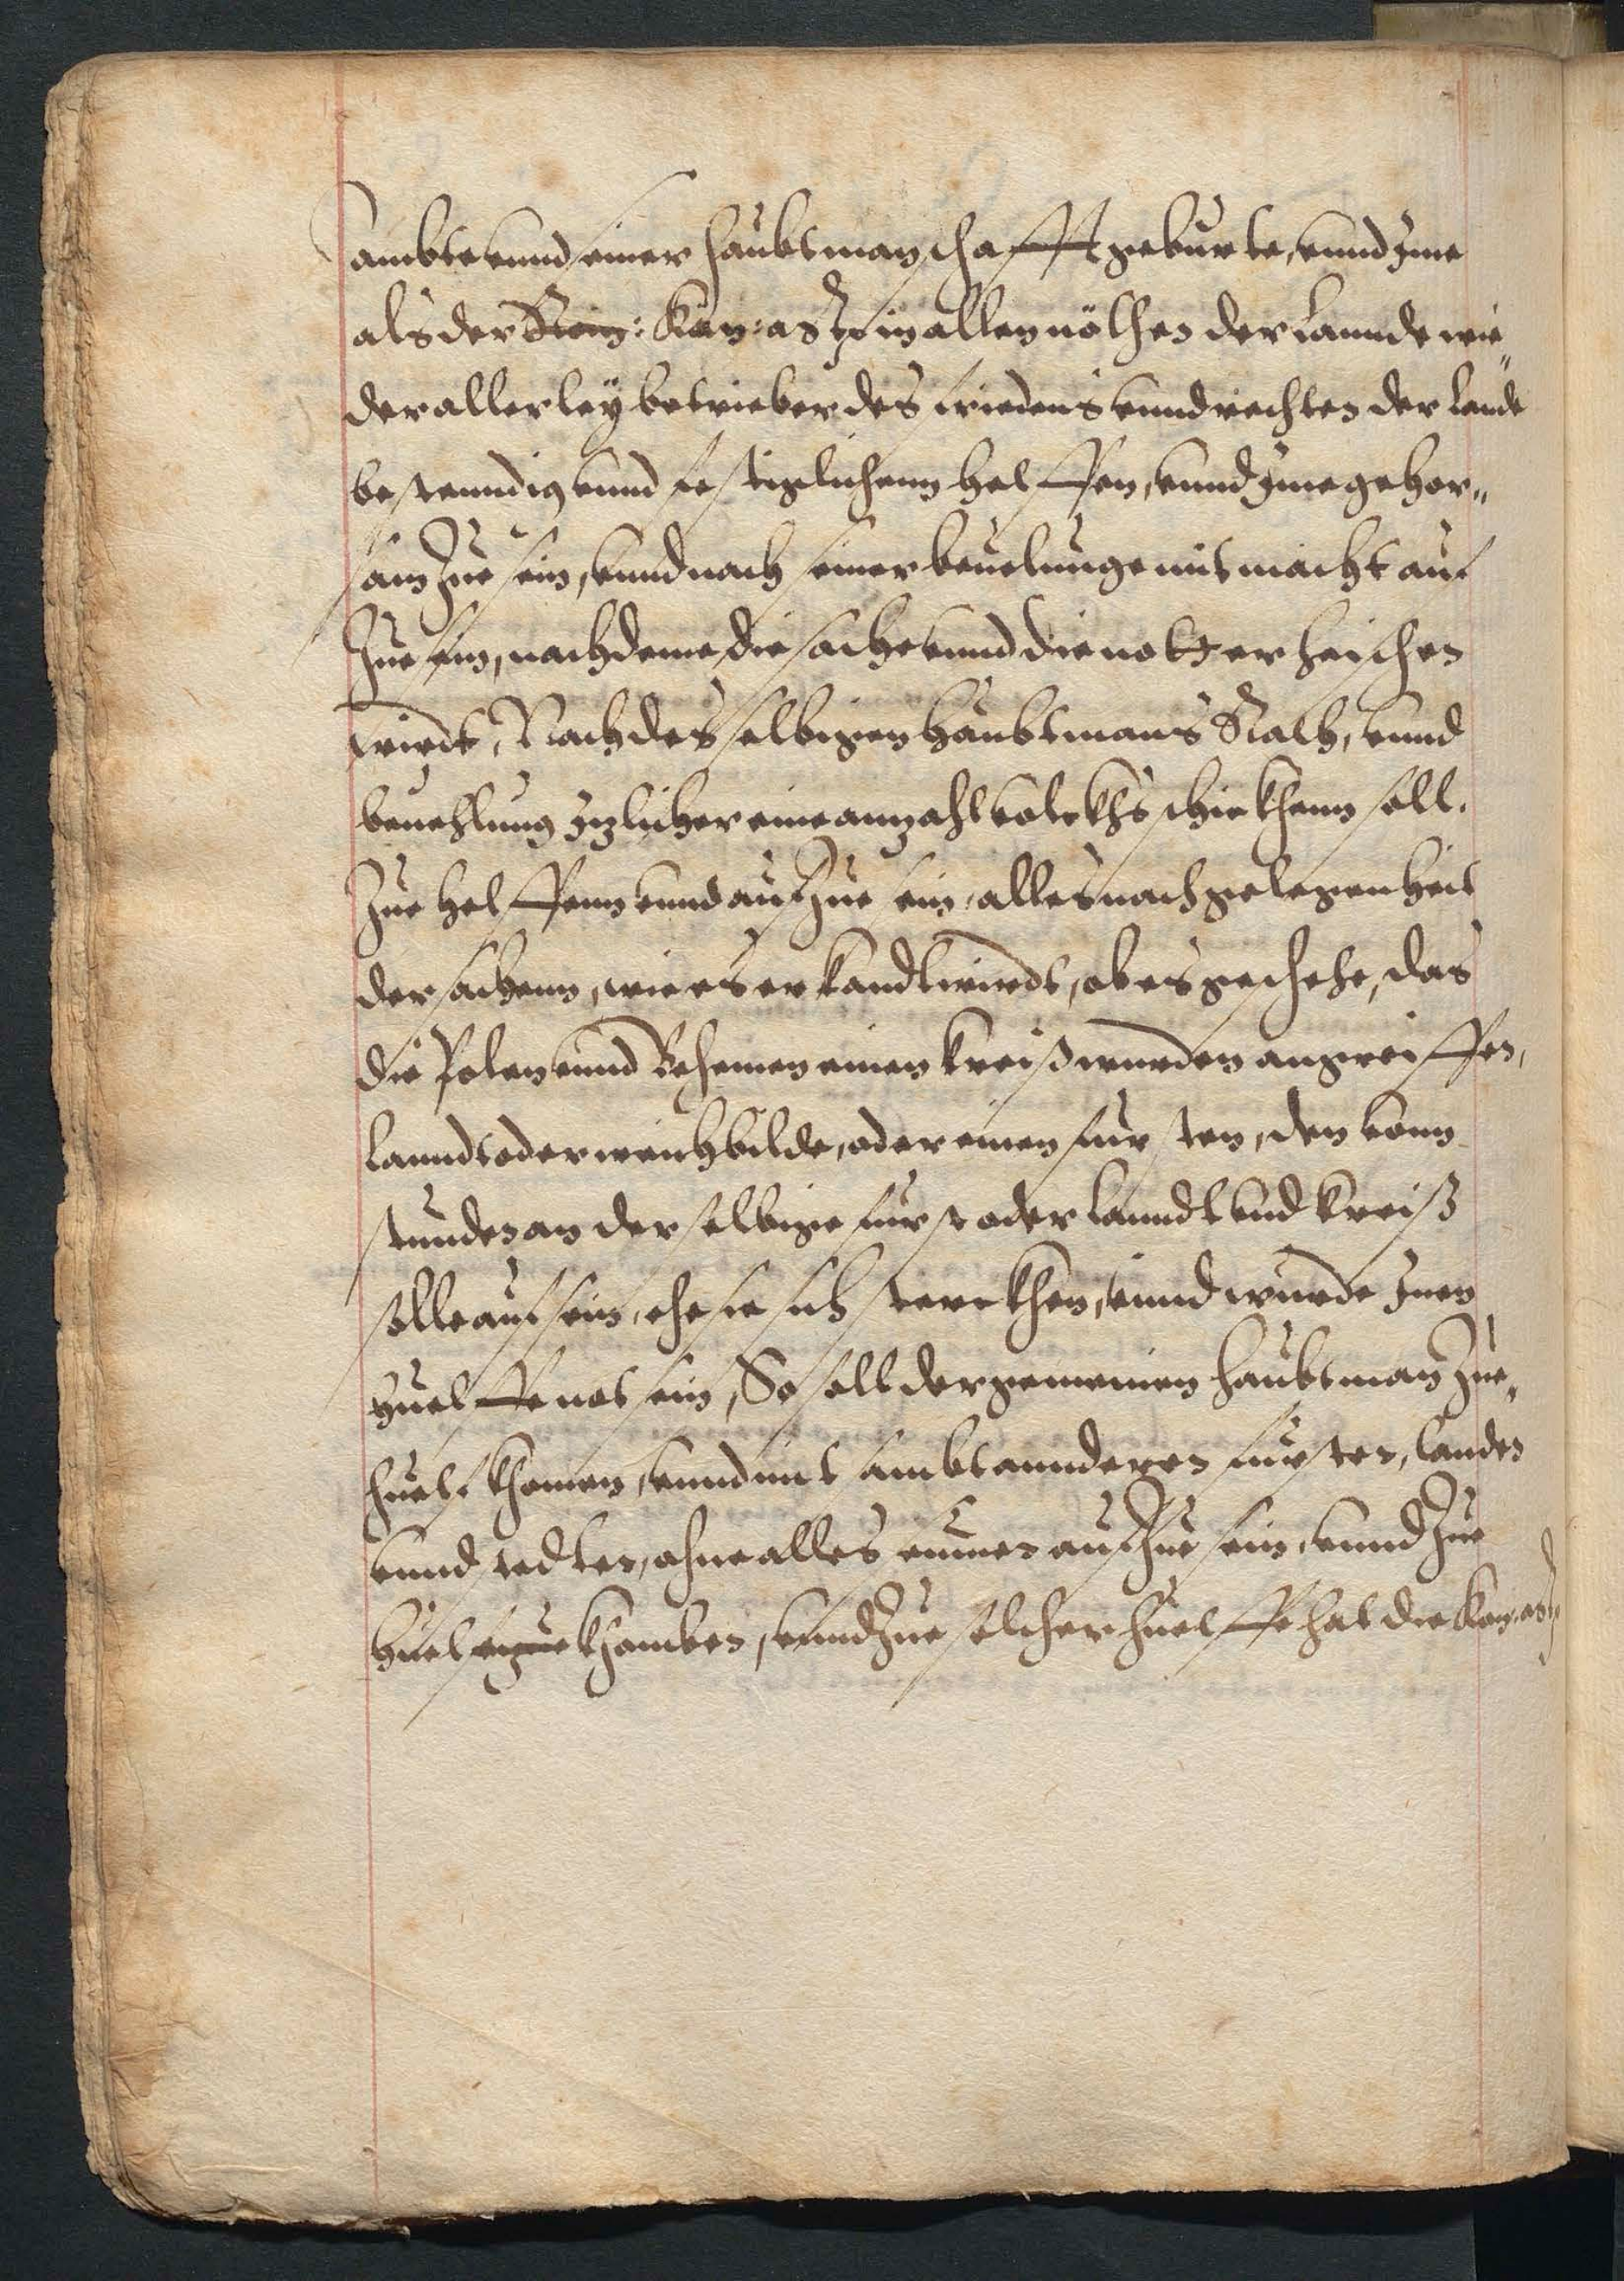 ambte vnnd seiner haubtmanschafft geburte, vnnd Ime
als der Kön: Kay: as in allen nöthen der Lannde wie„
der allerley betrieber des friedens vnnd rechten der Lande
bestenndig vnnd festiglichenn helffen, vnnd Ime gehor„
sam Zue sein, vnnd nach seiner beuelunge mit macht auf
Zue sein, nach deme die sache vnnd die nott erheischen
wirdt, Nach desselbigen haubtmans Rath, vnnd
beuehlung Itzlicher eine anzahl volckhs schickhenn soll.
Zue helffenn vnnd auf Zue sein, alles nach gelegenheit
der sachenn, wie es erkandt wirdt, ob es geschehe, das
die Polen vnnd Behemen einen kreiß wurden angreiffen,
Lanndt oder weichbilde, oder einen fursten, den vonn
stunden an derselbige furst oder Lanndt vnd kreiß
solle auf sein, ehe sie sich sterckhen, vnnd wurde Inen
huelffe not sein, So soll der gemeinen haubtman Zue„
huelf khomen, vnnd mit sambt annderen fursten, landen
vnnd stedten, ohne alles seumen auf Zue sein, vnnd Zue
huelf Zue khomben, vnnd Zue solcher huelffe hat die Kay: